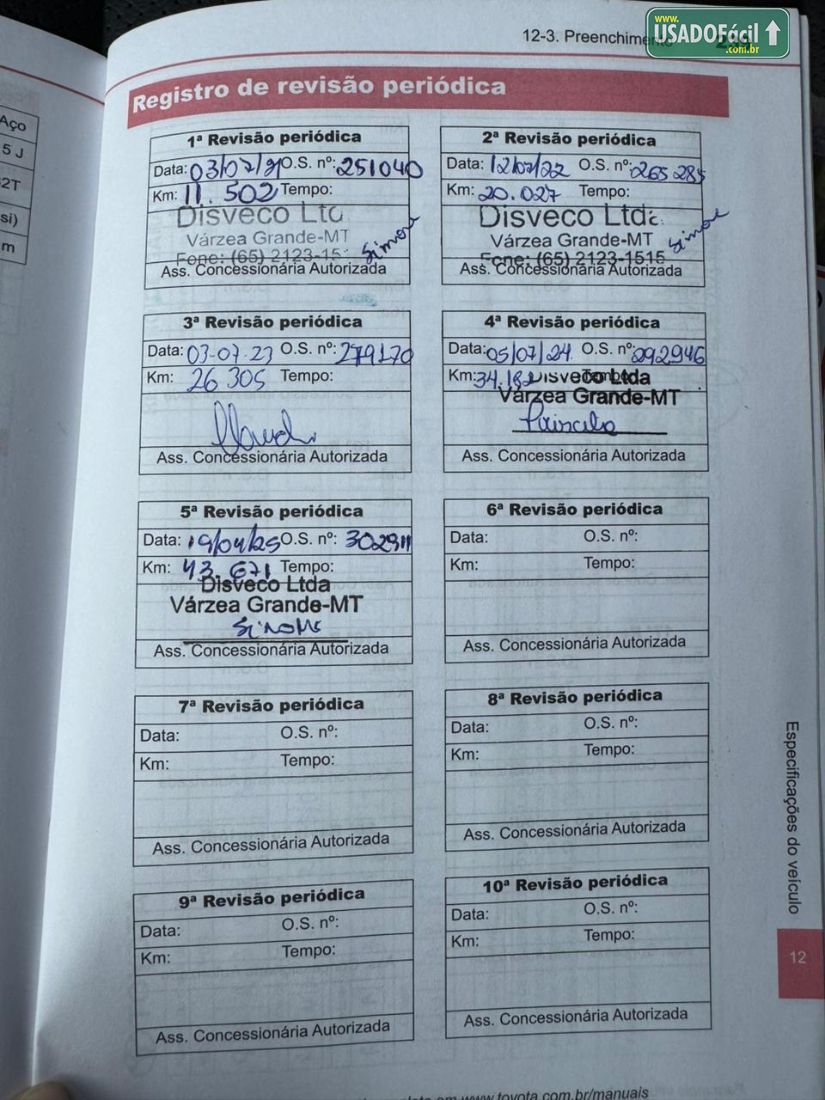 12-3. Preenchimento
www.
USADOFácil
.com.br
Registro de revisão periódica
1ª Revisão periódica
Data: 03/07/21 O.S. nº: 251040
Km: 11.502 Tempo:
Disveco Ltd
Várzea Grande-MT
Fone: (65) 2123-151
Simone
Ass. Concessionária Autorizada
2ª Revisão periódica
Data: 12/07/22 O.S. nº: 265285
Km: 20.027 Tempo:
Disveco Ltda
Várzea Grande-MT
Fone: (65) 2123-1515
Simone
Ass. Concessionária Autorizada
3ª Revisão periódica
Data: 03-07-23 O.S. nº: 279170
Km: 26 305 Tempo:
Ass. Concessionária Autorizada
4ª Revisão periódica
Data: 05/07/24 O.S. nº: 292946
Km: 34.182 Tempo:
Disveco Ltda
Várzea Grande-MT
Priscila
Ass. Concessionária Autorizada
5ª Revisão periódica
Data: 19/04/25 O.S. nº: 302911
Km: 43.671 Tempo:
Disveco Ltda
Várzea Grande-MT
Simone
Ass. Concessionária Autorizada
6ª Revisão periódica
Data: O.S. nº:
Km: Tempo:
Ass. Concessionária Autorizada
7ª Revisão periódica
Data: O.S. nº:
Km: Tempo:
Ass. Concessionária Autorizada
8ª Revisão periódica
Data: O.S. nº:
Km: Tempo:
Ass. Concessionária Autorizada
9ª Revisão periódica
Data: O.S. nº:
Km: Tempo:
Ass. Concessionária Autorizada
10ª Revisão periódica
Data: O.S. nº:
Km: Tempo:
Ass. Concessionária Autorizada
Especificações do veículo
12
em www.toyota.com.br/manuais
Aço
5 J
2T
si)
m